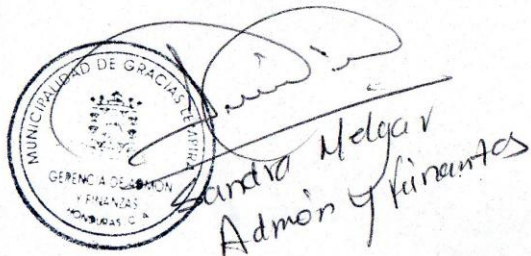 MUNICIPALIDAD DE GRACIAS LEMPIRA
GERENCIA DE ADMON
Y FINANZAS
HONDURAS C A
Sandra Melgar
Admón y finanzas